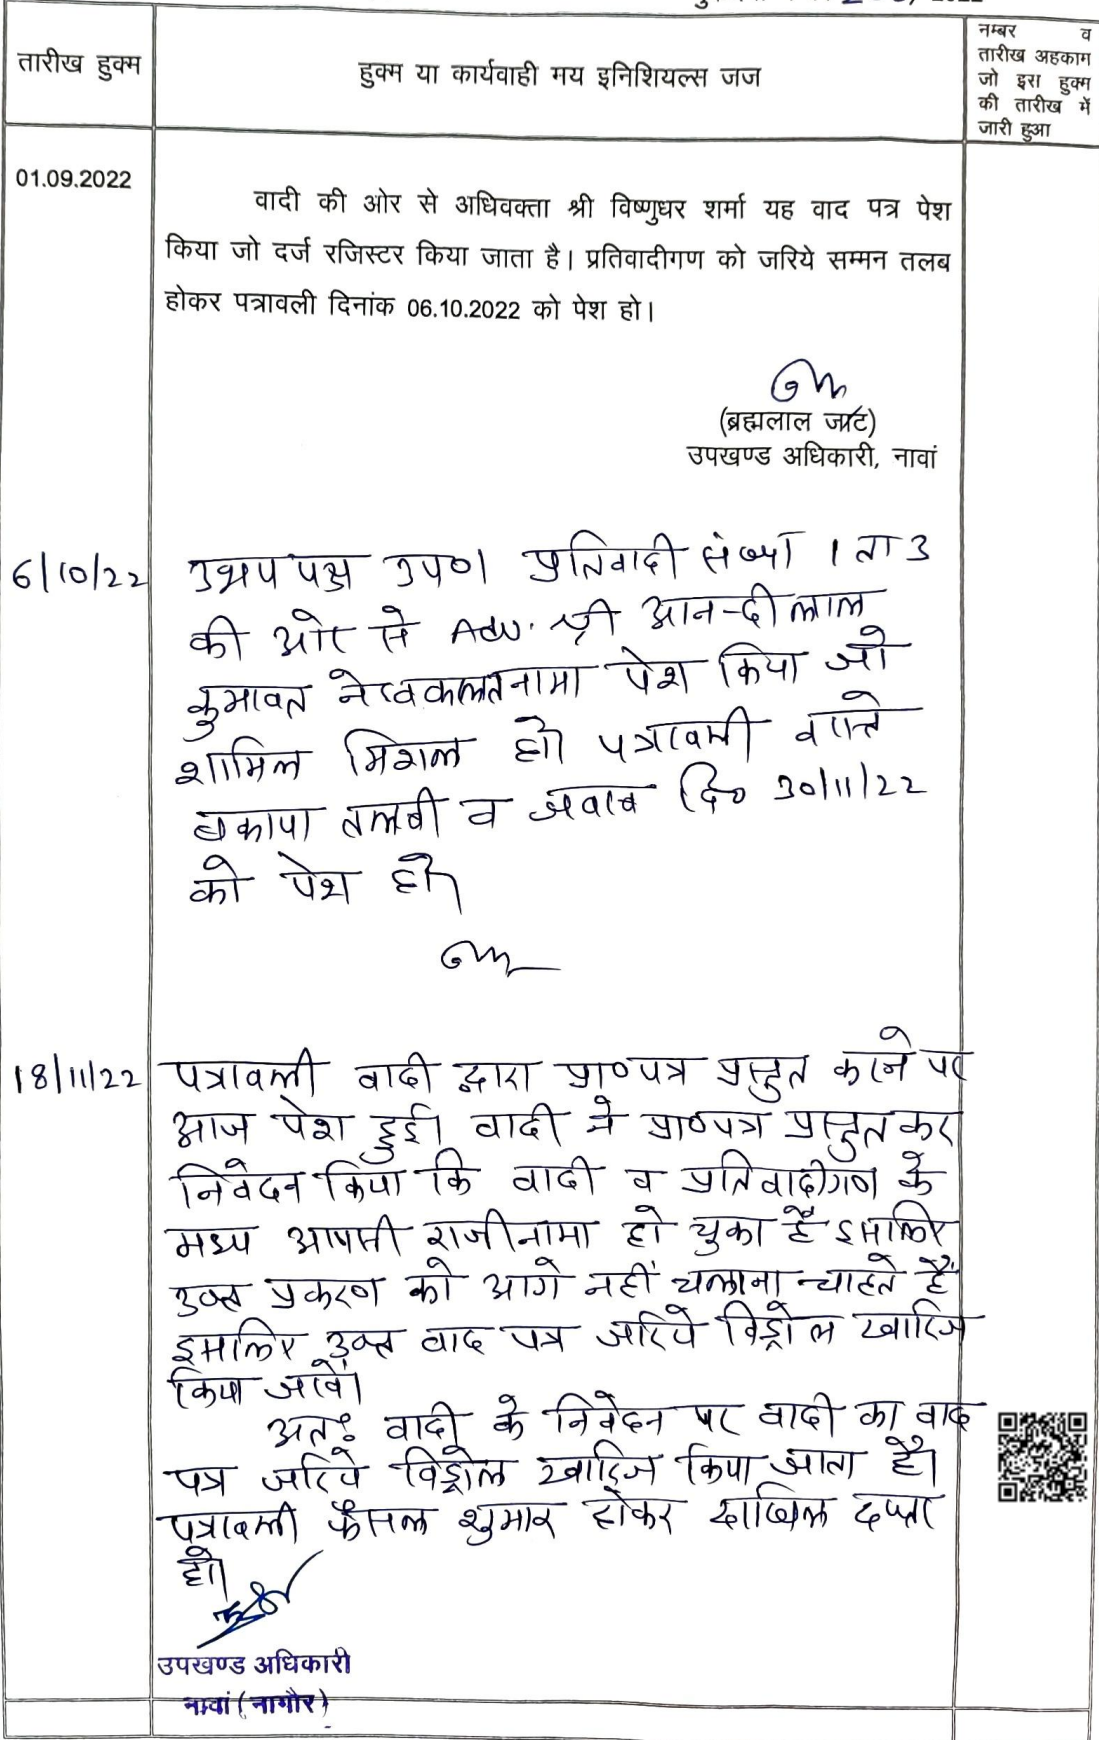 2022
तारीख हुक्म
हुक्म या कार्यवाही मय इनिशियल्स जज
नम्बर व
तारीख अहकाम
जो इस हुक्म
की तारीख में
जारी हुआ
01.09.2022
वादी की ओर से अधिवक्ता श्री विष्णुधर शर्मा यह वाद पत्र पेश
किया जो दर्ज रजिस्टर किया जाता है। प्रतिवादीगण को जरिये सम्मन तलब
होकर पत्रावली दिनांक 06.10.2022 को पेश हो।
(ब्रह्मलाल जाट)
उपखण्ड अधिकारी, नावां
6/10/22 उभय पक्ष उप०। प्रतिवादी संख्या 1 ता 3
की ओर से Adv. श्री आनन्दी लाल
कुमावत ने वकालतनामा पेश किया जो
शामिल मिशल हो। पत्रावली वास्ते
बकाया तलबी व जवाब दि० 30/11/22
को पेश हो।
18/11/22 पत्रावली वादी द्वारा प्रा०पत्र प्रस्तुत करने पर
आज पेश हुई। वादी ने प्रा०पत्र प्रस्तुत कर
निवेदन किया कि वादी व प्रतिवादीगण के
मध्य आपसी राजीनामा हो चुका है इसलिए
उक्त प्रकरण को आगे नहीं चलाना चाहते हैं
इसलिए उक्त वाद पत्र जरिये विड्रोल खारिज
किया जावें।
अतः वादी के निवेदन पर वादी का वाद
पत्र जरिये विड्रोल खारिज किया जाता है।
पत्रावली फैसल शुमार होकर दाखिल दफ्तर
हो।
उपखण्ड अधिकारी
नावां (नागौर)